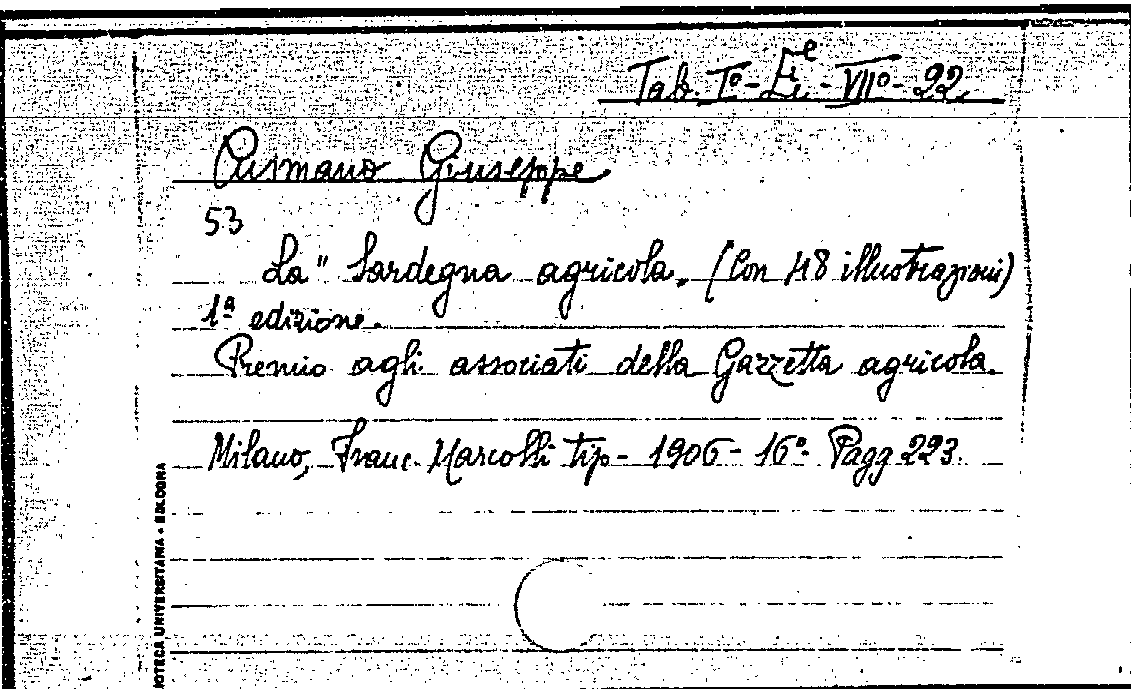 Tab. Iº - Li^e - VIIº - 22
Cusmano Giuseppe
53
La "Sardegna agricola„ (Con 48 illustrazioni)
1ª edizione.
Premio agli associati della Gazzetta agricola.
Milano, Franc. Marcolli tip - 1906 - 16º. Pagg 223.
IOTECA UNIVERSITARIA - BOLOGNA